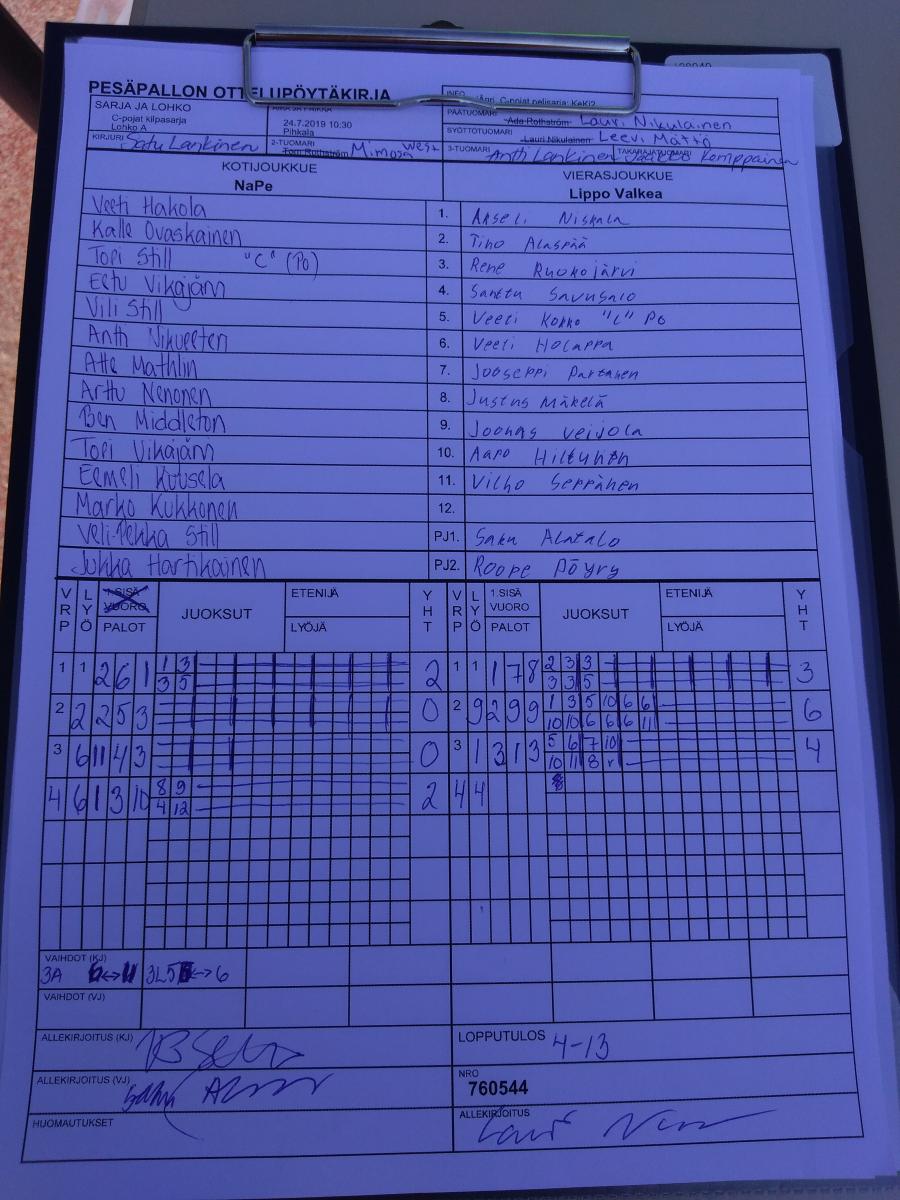 PESÄPALLON OTTELUPÖYTÄKIRJA
SARJA JA LOHKO
C-pojat kilpasarja
Lohko A
24.7.2019 10:30
Pihkala
INFO C-pojat pelisarja: KeKi2
PÄÄTUOMARI Ada Rothström Lauri Nikulainen
SYÖTTÖTUOMARI Lauri Nikulainen Leevi Mättö
KIRJURI Satu Lankinen 2-TUOMARI Tom Rothström Mimosa West 3-TUOMARI Antti Lankinen TAKARAJATUOMARI Jaakko Kemppainen
KOTIJOUKKUE VIERASJOUKKUE
NaPe Lippo Valkea
Veeti Hakola 1. Akseli Niskala
Kalle Ovaskainen 2. Tino Alaspää
Topi Still "C" (PO) 3. Rene Ruokojärvi
Eetu Vikajärvi 4. Santtu Savusalo
Vili Still 5. Veeti Kokko "C" PO
Antti 6. Veeti Holappa
Atte Mathlin 7. Jooseppi Partanen
Arttu Nenonen 8. Justus Mäkelä
Ben Middleton 9. Joonas Veijola
Topi Vikajärvi 10. Aapo Hiltunen
Eemeli Kuusela 11. Vilho Seppänen
Marko Kukkonen 12.
Veli-Pekka Still PJ1. Saku Alatalo
Jukka Hartikainen PJ2. Roope Pöyry
VRP LYÖ 1.SISÄ VUORO PALOT JUOKSUT ETENIJÄ LYÖJÄ YHT VRP LYÖ 1.SISÄ VUORO PALOT JUOKSUT ETENIJÄ LYÖJÄ YHT
1 1 2 6 1 1 3 2 1 1 1 7 8 2 3 3 3
3 5 3 3 5
2 2 2 5 3 0 2 9 2 9 9 1 3 5 10 6 6 6
10 10 6 6 6 11
3 6 11 4 3 0 3 1 3 1 3 5 6 7 10 4
10 11 8 r
4 6 1 3 10 8 9 2 4 4
4 12
VAIHDOT (KJ)
3A 3L5 ↔ 6
VAIHDOT (VJ)
ALLEKIRJOITUS (KJ) LOPPUTULOS 4-13
ALLEKIRJOITUS (VJ) NRO
760544
HUOMAUTUKSET ALLEKIRJOITUS